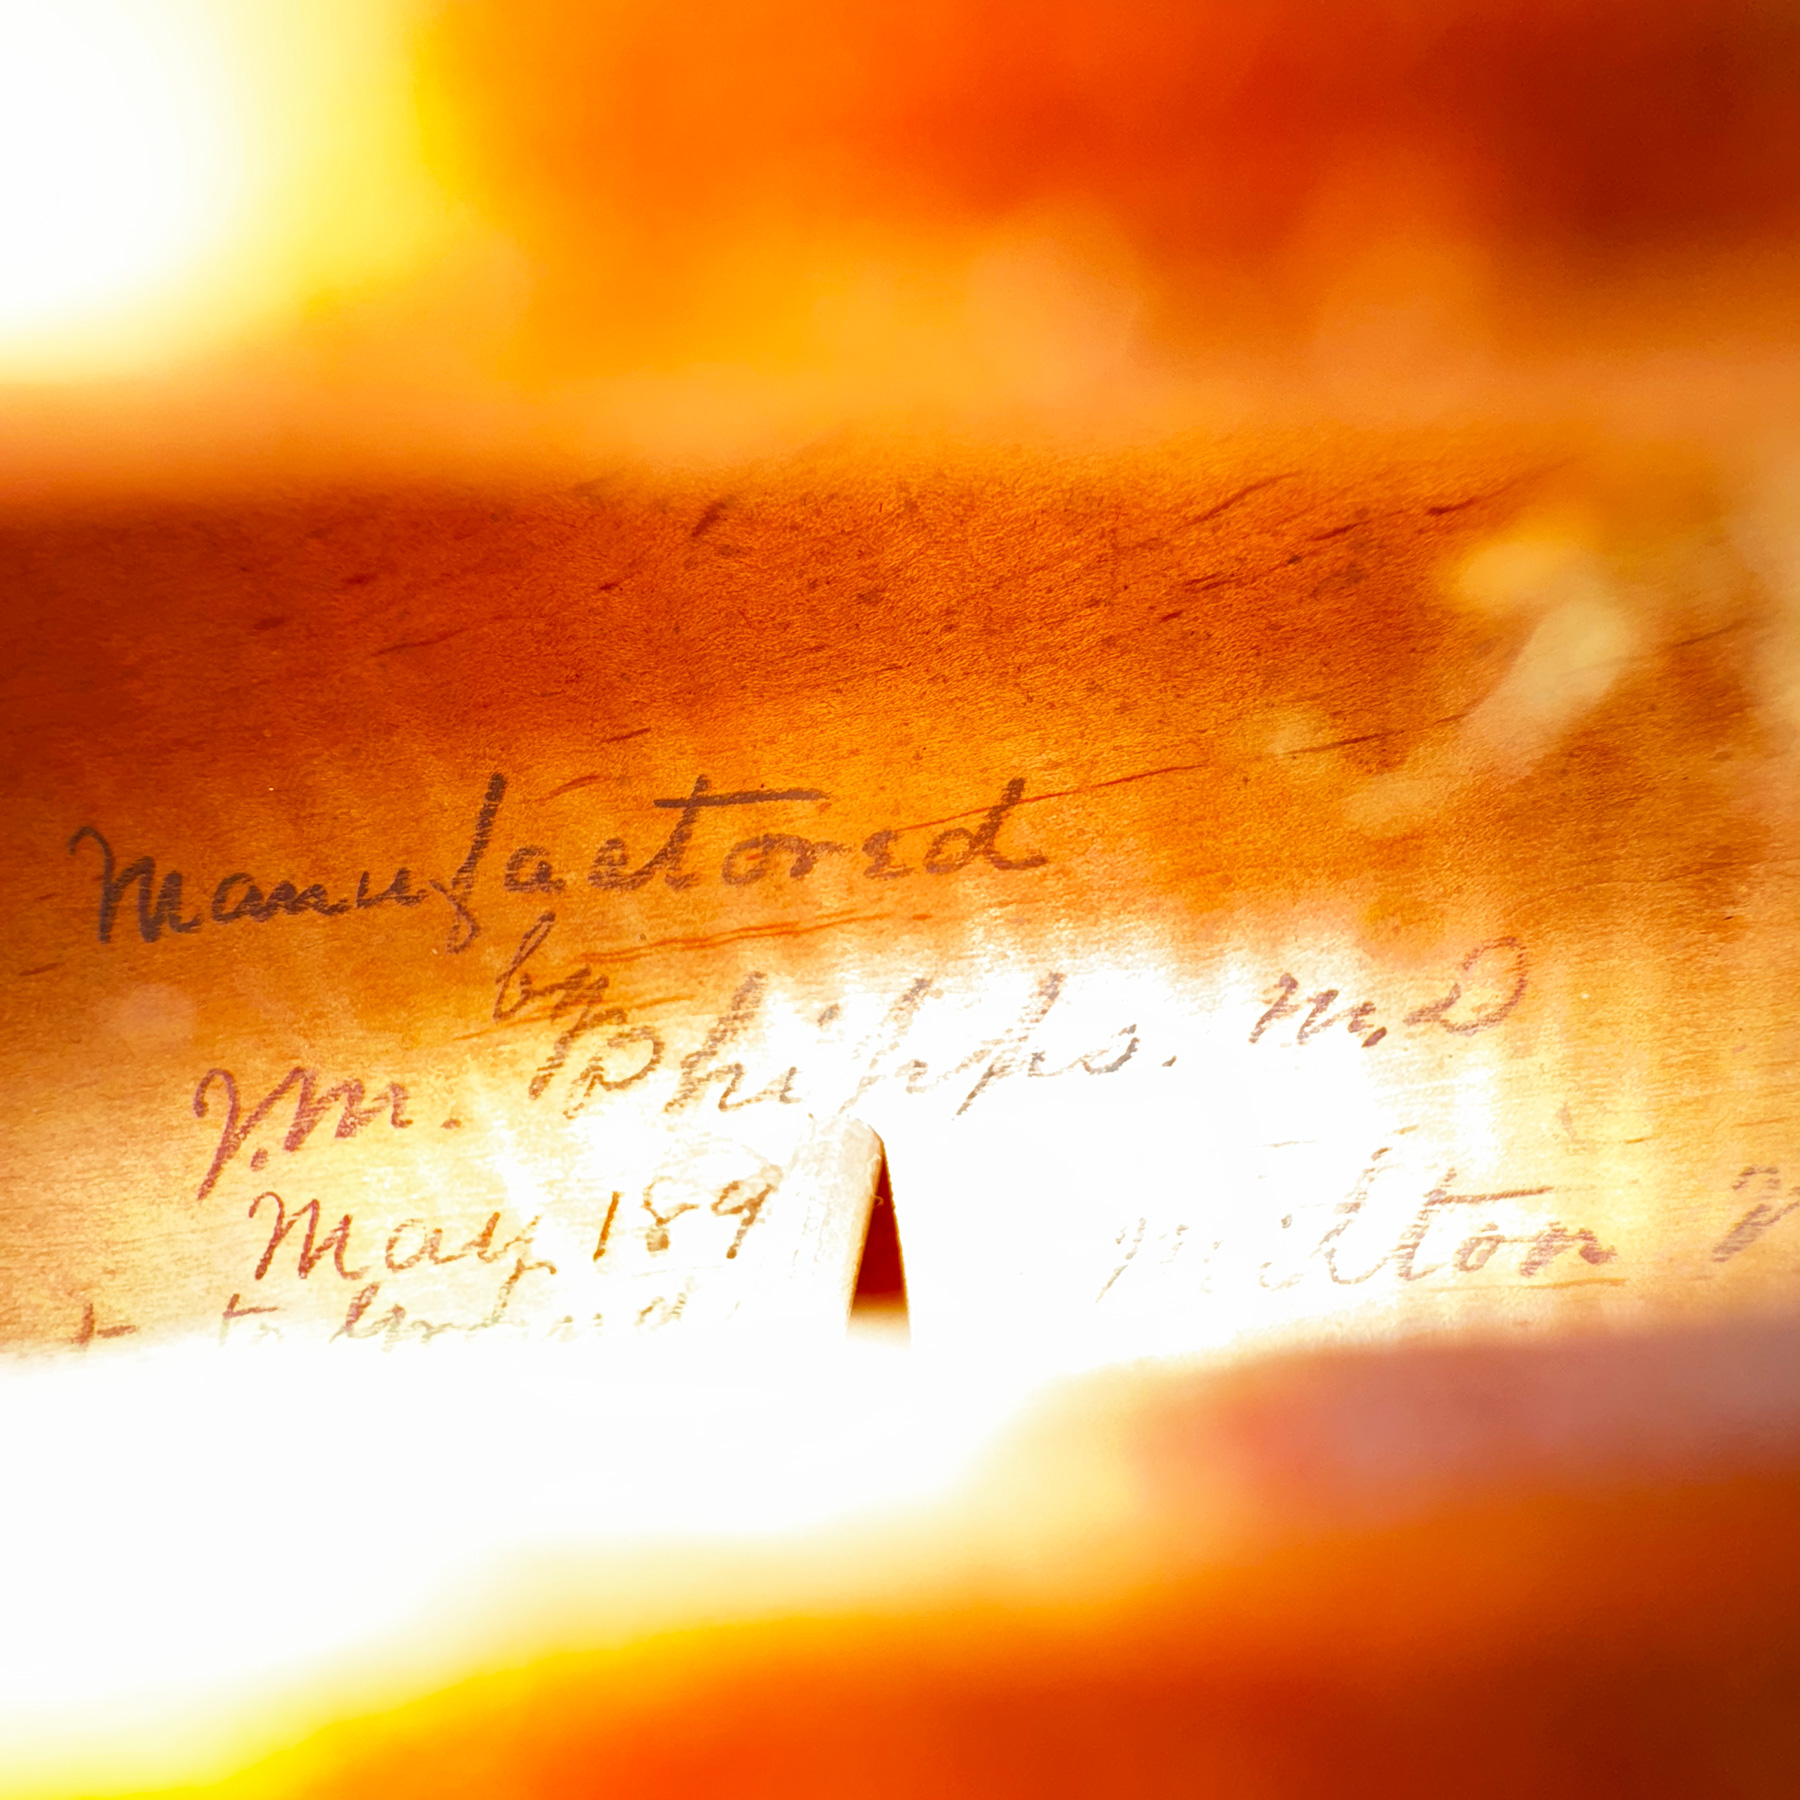 Manufactored
by
J.M. Phipps. M.D
May 189
Milton
to